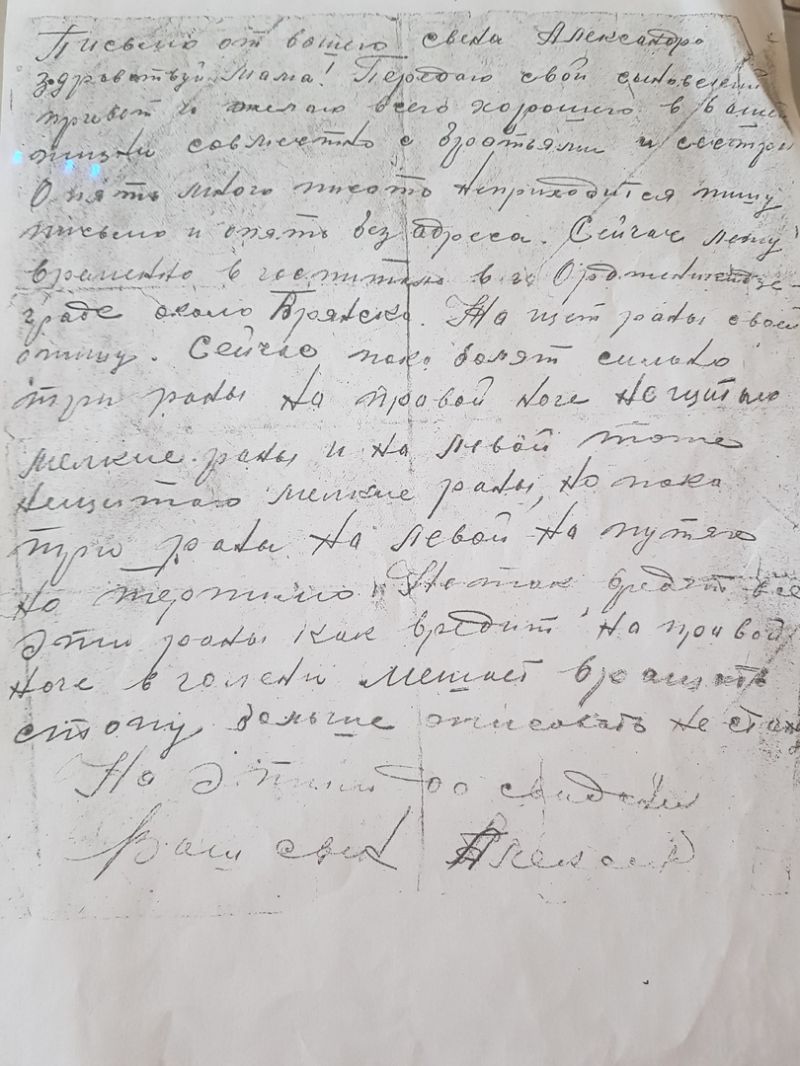 Письмо от вашего сына Александра
здравствуй Мама! Передаю свой сыновений
привет и желаю всего хорошего в вашей
жизни совместно с братьями и сестрой
Опять много писать неприходится пишу
письмо и опять без адреса. Сейчас лежу
временно в госпитале в го Орджоникидзе-
граде около Брянска. На щет раны своей
опишу. Сейчас пока болят сильно
три раны на правой ноге не щитаю
мелкие раны и на левой тоже
нещитаю мелкие раны, но пока
три раны на левой на путях
но терпимо. Не так вредят все
эти раны как вредит на правой
ноге в голени мешает вращать
стопу больше описовать не стану
На этим до свидания
Ваш сын